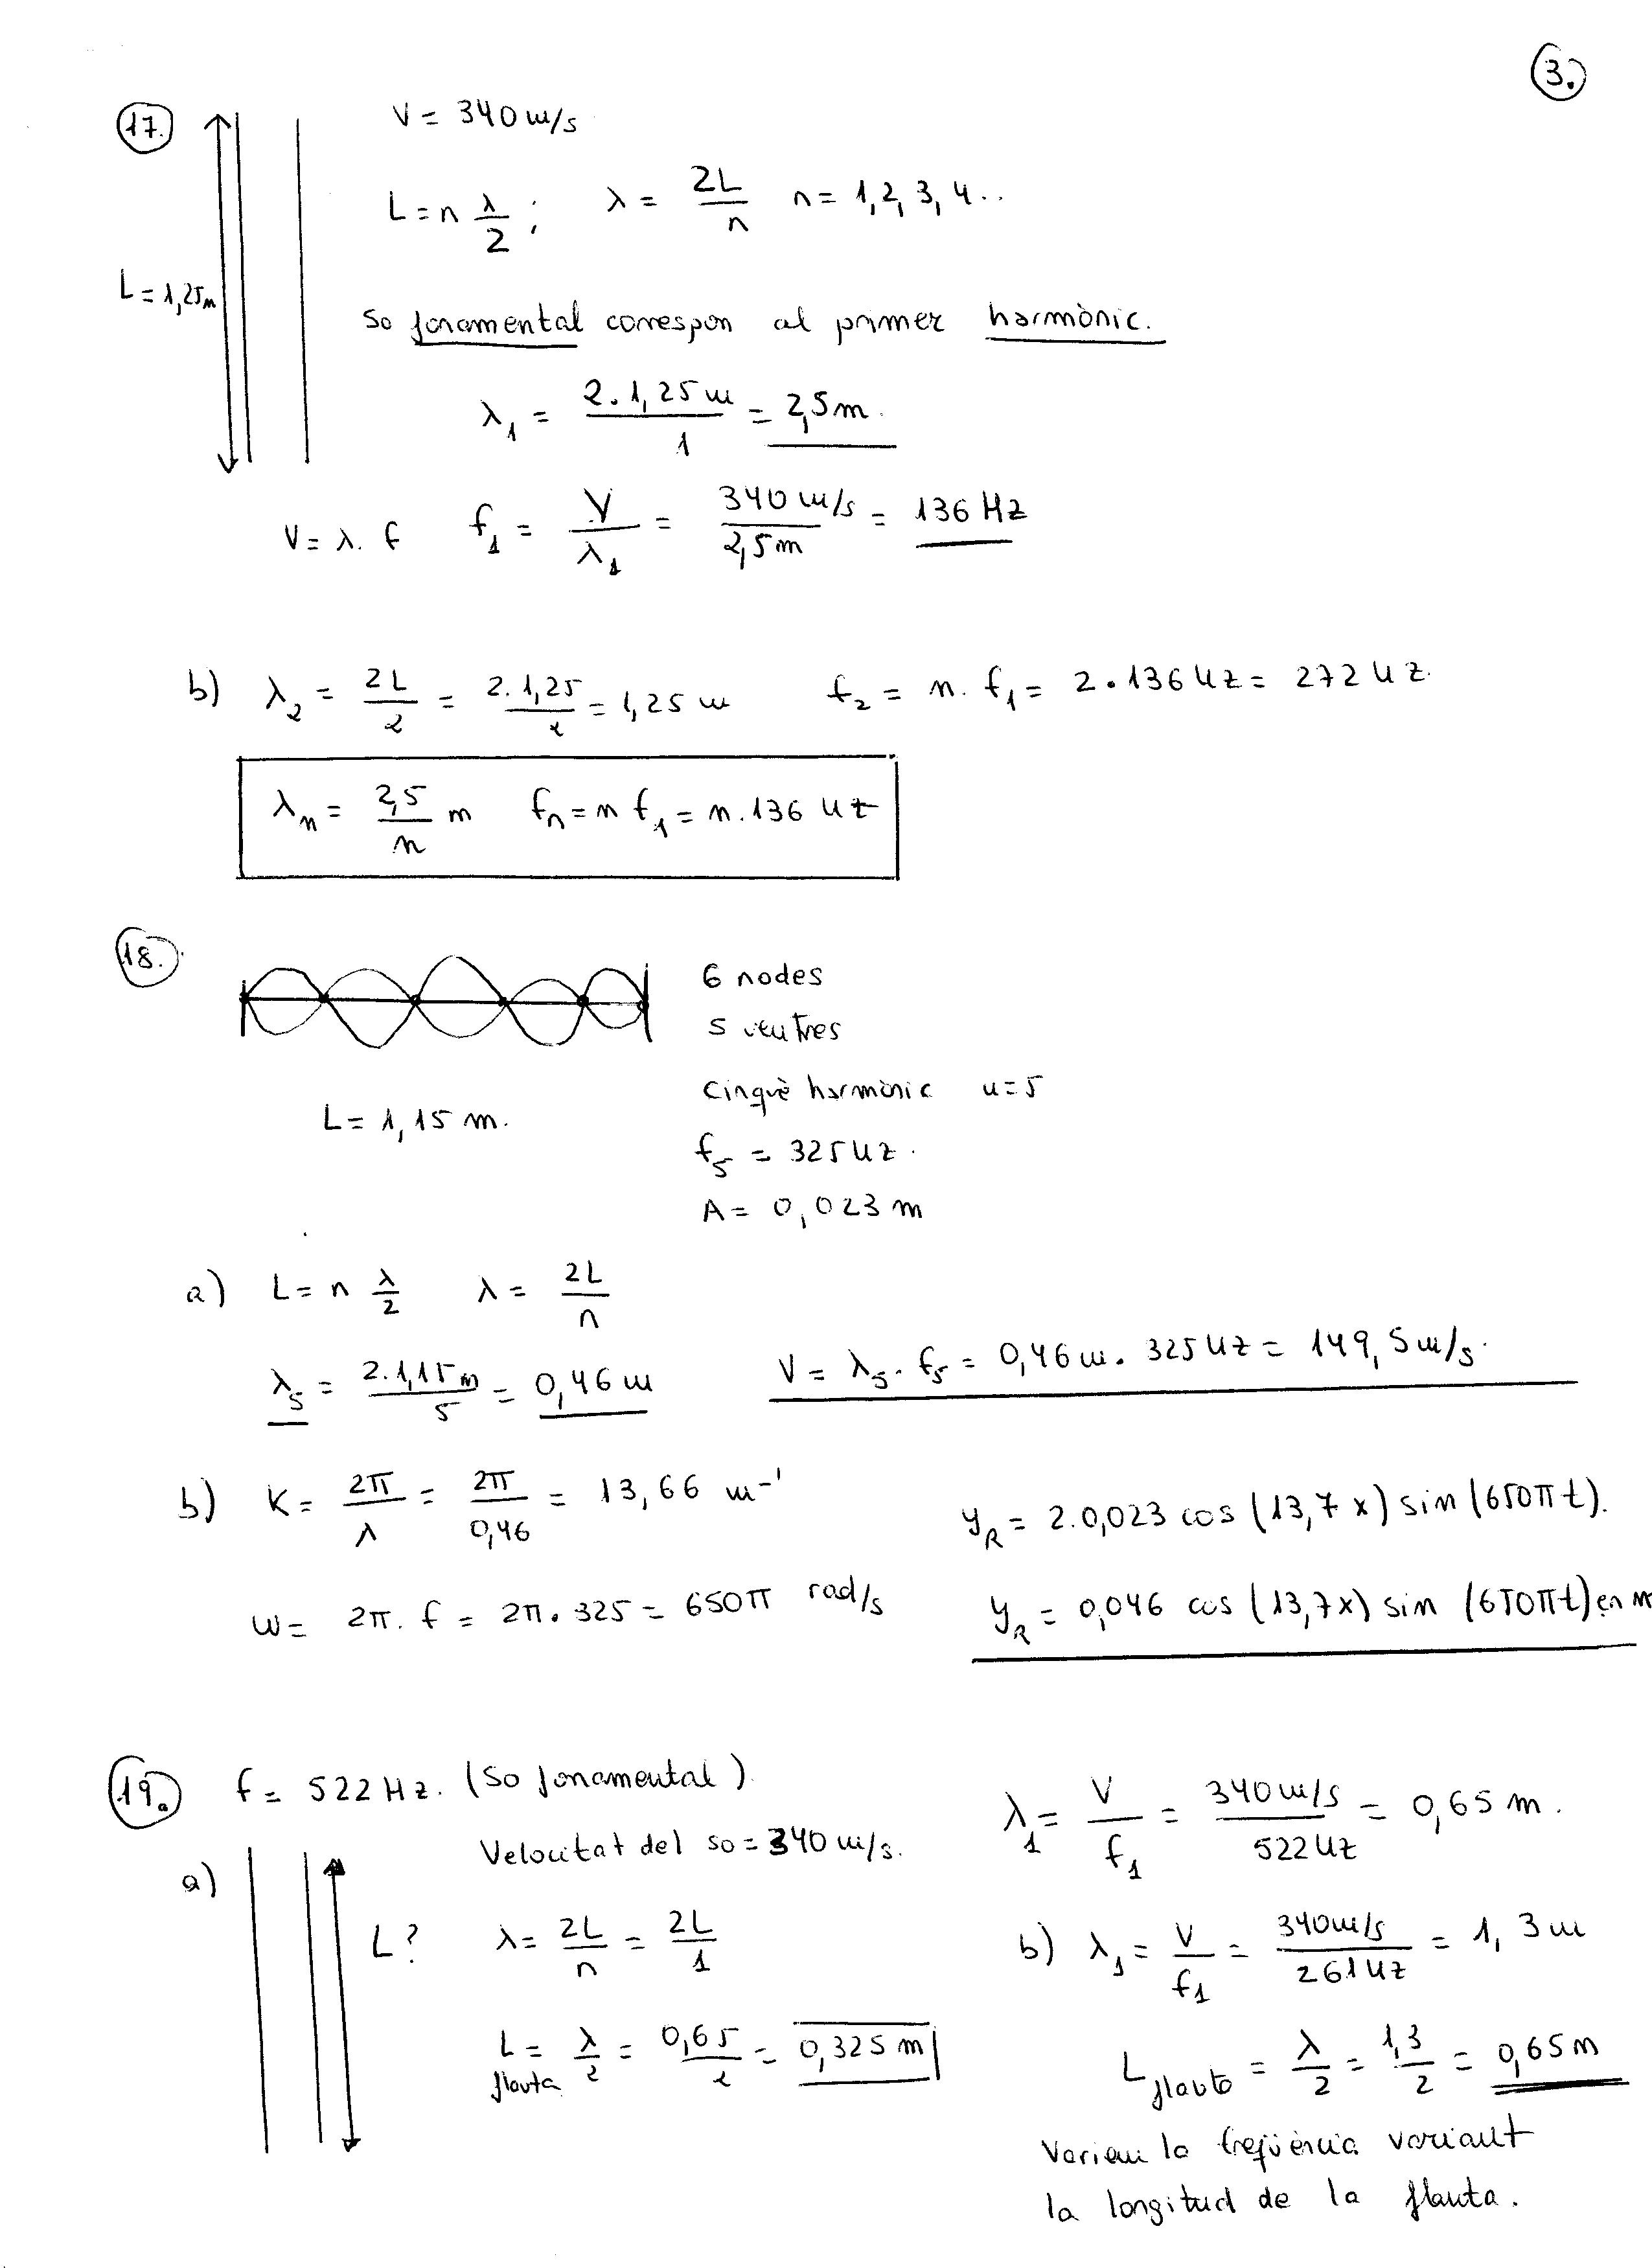 3.
17.
V = 340 m/s
L = n λ/2 ; λ = 2L/n n = 1, 2, 3, 4..
L = 1,25m
So fonamental correspon al primer harmònic.
λ₁ = 2.1,25 m/1 = 2,5m.
V = λ. f f₁ = V/λ₁ = 340 m/s/2,5m = 136 Hz
b) λ₂ = 2L/2 = 2.1,25/2 = 1,25 m f₂ = n. f₁ = 2.136 Hz = 272 Hz.
λₙ = 2,5/n m fₙ = n f₁ = n.136 Hz
18.
6 nodes
5 ventres
Cinquè harmònic n=5
L = 1,15 m.
f₅ = 325 Hz.
A = 0,023 m
a) L = n λ/2 λ = 2L/n
λ₅ = 2.1,15m/5 = 0,46 m V = λ₅. f₅ = 0,46 m. 325 Hz = 149,5 m/s.
b) K = 2π/λ = 2π/0,46 = 13,66 m⁻¹
y_R = 2.0,023 cos (13,7 x) sin (650π t).
ω = 2π. f = 2π. 325 = 650π rad/s
y_R = 0,046 cos (13,7x) sin (650πt) en m
19.
f = 522 Hz. (So fonamental).
Velocitat del so = 340 m/s.
a)
L?
λ = 2L/n = 2L/1
L flauta = λ/2 = 0,65/2 = 0,325 m
λ₁ = V/f₁ = 340 m/s/522 Hz = 0,65 m.
b) λ₁ = V/f₁ = 340m/s/261 Hz = 1,3 m
L flauta = λ/2 = 1,3/2 = 0,65 m
Variem la freqüència variant
la longitud de la flauta.